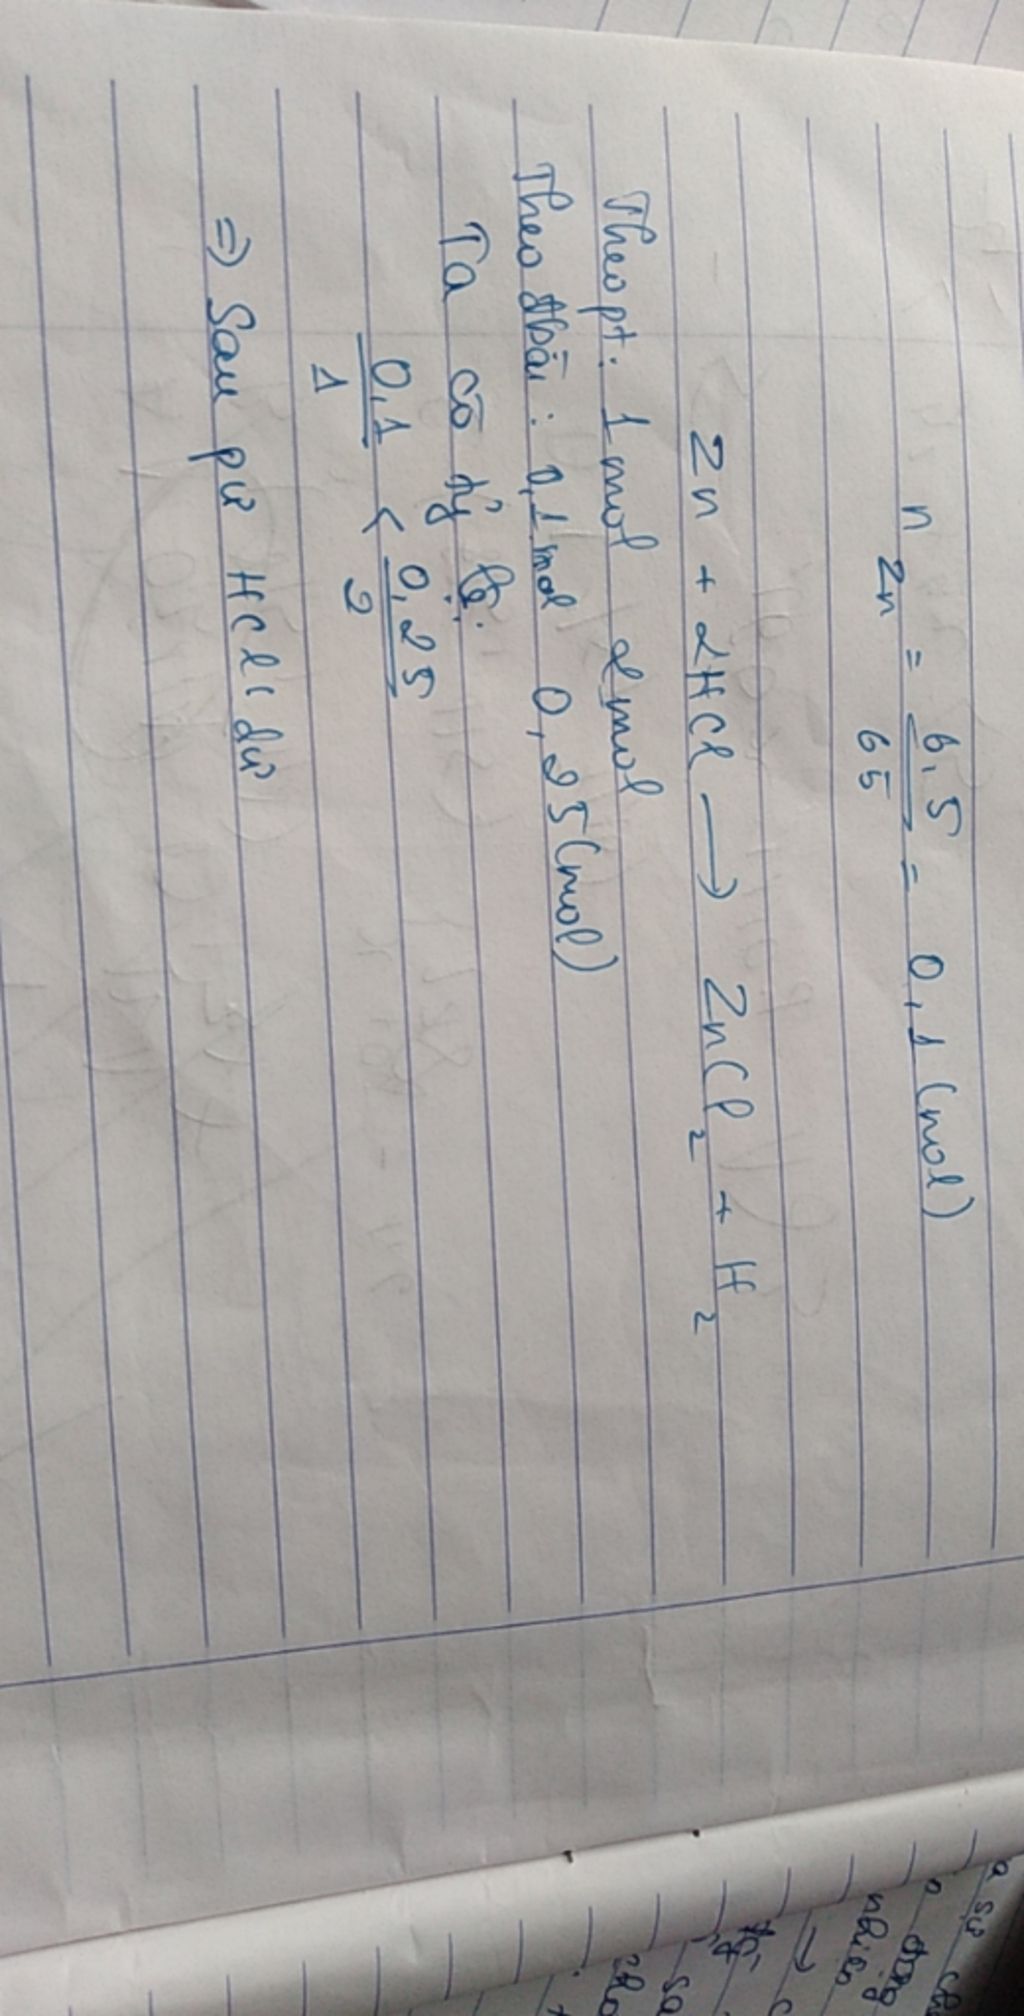 n Zn = 6,5 / 65 = 0,1 (mol)
Zn + 2HCl → ZnCl2 + H2
Theo pt: 1 mol 2 mol
Theo đbài: 0,1 mol 0,25 (mol)
Ta có tỷ lệ:
0,1 / 1 < 0,25 / 2
⇒ Sau pứ HCl dư
nhiên